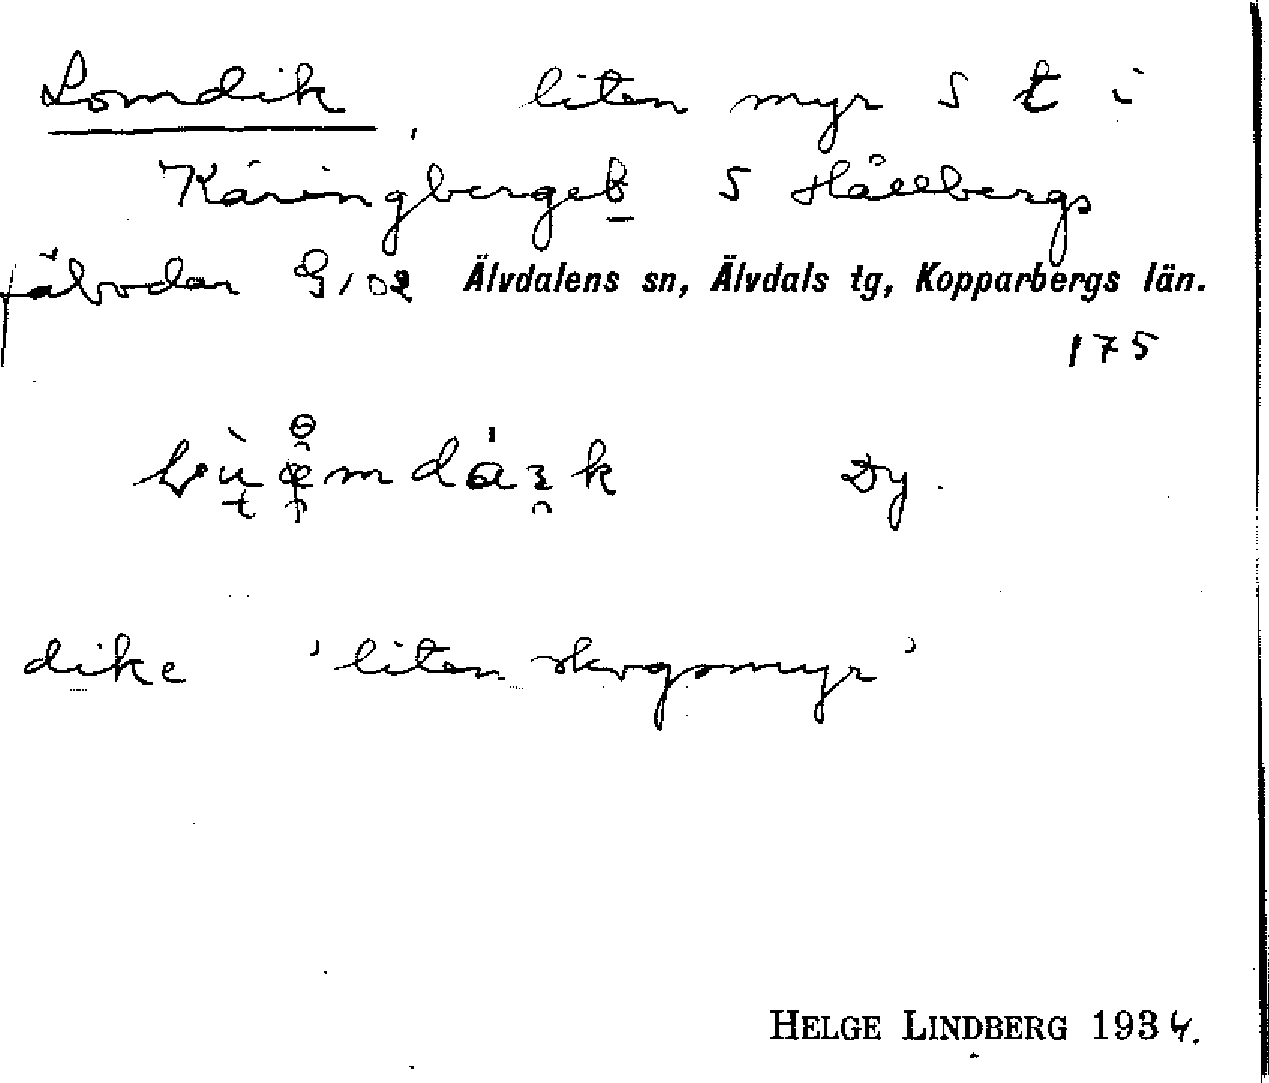 Lomdik, liten myr S t i
Käringberget S Hållbergs
fäbodar 9102 Älvdalens sn, Älvdals tg, Kopparbergs län.
175
Dy.
dike 'liten skogsmyr'
HELGE LINDBERG 1934.